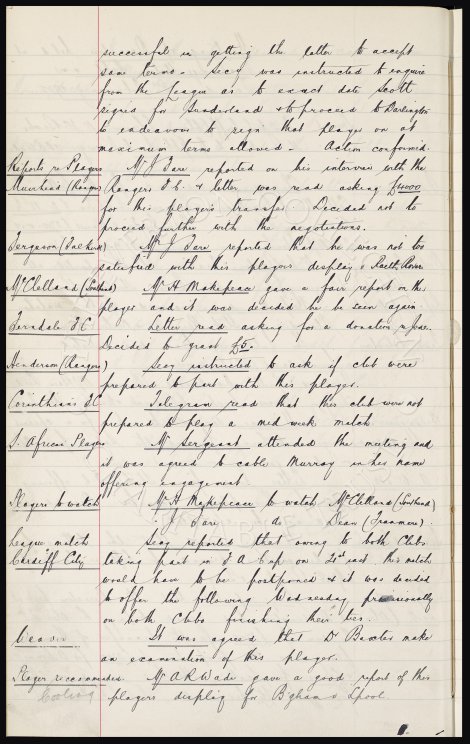 successful in getting the latter to accept
same terms. Secy was instructed to enquire
from the League as to exact date Scott
signed for Sunderland & to proceed to Darlington
to endeavour to sign that player on at
maximum terms allowed - Action confirmed.
Reports re Players Mr J Fare reported on his interview with the
Muirhead (Rangers) Rangers F.C. & letter was read asking £4000
for this players transfer. Decided not to
proceed further with the negotiations.
Ferguson (Falkirk) Mr J Fare reported that he was not too
satisfied with this players display v Raith Rovers
McClelland (Southend) Mr H Makepeace gave a fair report on this
player and it was decided he be seen again
Ferndale F.C Letter read asking for a donation
Decided to grant £5.
Henderson (Rangers) Secy instructed to ask if club were
prepared to part with this player.
Corinthians F.C Telegram read that this club were not
prepared to play a mid week match
S. African Players Mr Sergeant attended the meeting and
it was agreed to cable Murray in his name
offering engagement.
Players to watch Mr H Makepeace to watch McClelland (Southend)
" J Fare " do " Dean (Tranmere)
League match Secy reported that owing to both Clubs
Cardiff City taking part in F A Cup on 21st inst this match
would have to be postponed & it was decided
to offer the following Wednesday provisionally
on both Clubs finishing their ties.
It was agreed that Dr Baxter make
an examination of this player.
Player recommended Mr A R Wade gave a good report of this
players display for B'gham v L'pool